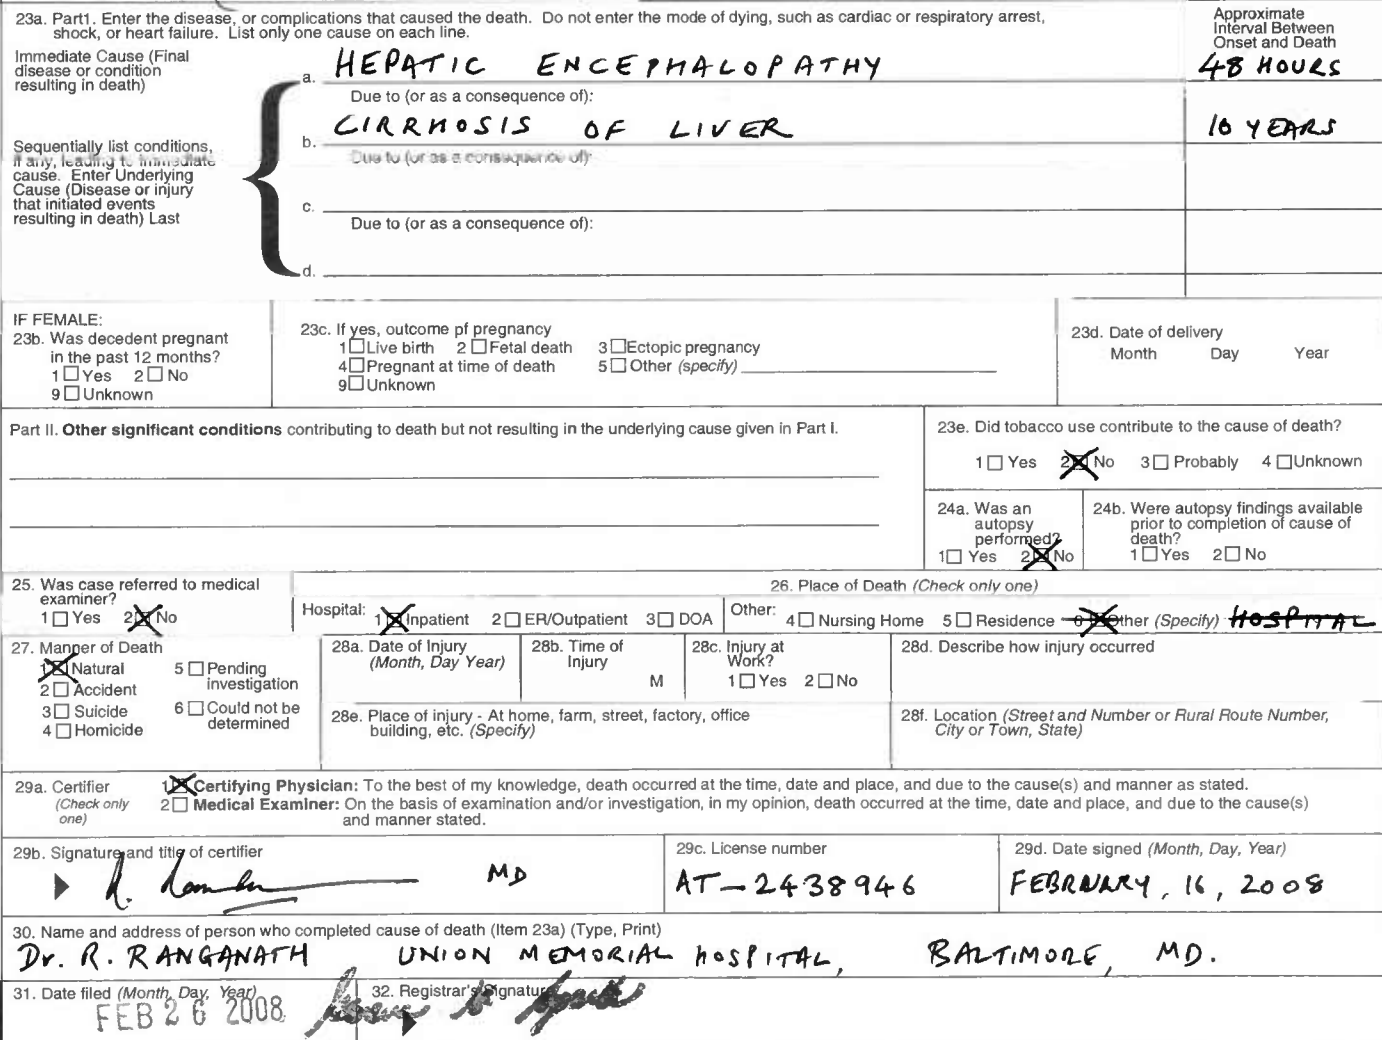 23a. Part1. Enter the disease, or complications that caused the death. Do not enter the mode of dying, such as cardiac or respiratory arrest,
shock, or heart failure. List only one cause on each line.
Approximate
Interval Between
Onset and Death
Immediate Cause (Final
disease or condition
resulting in death)
a. HEPATIC ENCEPHALOPATHY 48 HOURS
Due to (or as a consequence of):
b. CIRRHOSIS OF LIVER 10 YEARS
Sequentially list conditions,
if any, leading to immediate
cause. Enter Underlying
Cause (Disease or injury
that initiated events
resulting in death) Last
Due to (or as a consequence of):
c.
Due to (or as a consequence of):
d.
IF FEMALE:
23b. Was decedent pregnant
in the past 12 months?
1 ☐ Yes 2 ☐ No
9 ☐ Unknown
23c. If yes, outcome pf pregnancy
1 ☐ Live birth 2 ☐ Fetal death 3 ☐ Ectopic pregnancy
4 ☐ Pregnant at time of death 5 ☐ Other (specify)
9 ☐ Unknown
23d. Date of delivery
Month Day Year
Part II. Other significant conditions contributing to death but not resulting in the underlying cause given in Part I.
23e. Did tobacco use contribute to the cause of death?
1 ☐ Yes 2 ☒ No 3 ☐ Probably 4 ☐ Unknown
24a. Was an
autopsy
performed?
1 ☐ Yes 2 ☒ No
24b. Were autopsy findings available
prior to completion of cause of
death?
1 ☐ Yes 2 ☐ No
25. Was case referred to medical
examiner?
1 ☐ Yes 2 ☒ No
26. Place of Death (Check only one)
Hospital: 1 ☒ Inpatient 2 ☐ ER/Outpatient 3 ☐ DOA Other: 4 ☐ Nursing Home 5 ☐ Residence 6 ☒ Other (Specify) HOSPITAL
27. Manner of Death
1 ☒ Natural 5 ☐ Pending
investigation
2 ☐ Accident
3 ☐ Suicide 6 ☐ Could not be
determined
4 ☐ Homicide
28a. Date of Injury
(Month, Day Year)
28b. Time of
Injury
M
28c. Injury at
Work?
1 ☐ Yes 2 ☐ No
28d. Describe how injury occurred
28e. Place of injury - At home, farm, street, factory, office
building, etc. (Specify)
28f. Location (Street and Number or Rural Route Number,
City or Town, State)
29a. Certifier
(Check only
one)
1 ☒ Certifying Physician: To the best of my knowledge, death occurred at the time, date and place, and due to the cause(s) and manner as stated.
2 ☐ Medical Examiner: On the basis of examination and/or investigation, in my opinion, death occurred at the time, date and place, and due to the cause(s)
and manner stated.
29b. Signature and title of certifier
MD
29c. License number
AT-2438946
29d. Date signed (Month, Day, Year)
FEBRUARY, 16, 2008
30. Name and address of person who completed cause of death (Item 23a) (Type, Print)
Dr. R. RANGANATH UNION MEMORIAL HOSPITAL, BALTIMORE, MD.
31. Date filed (Month, Day, Year)
FEB 26 2008
32. Registrar's Signature